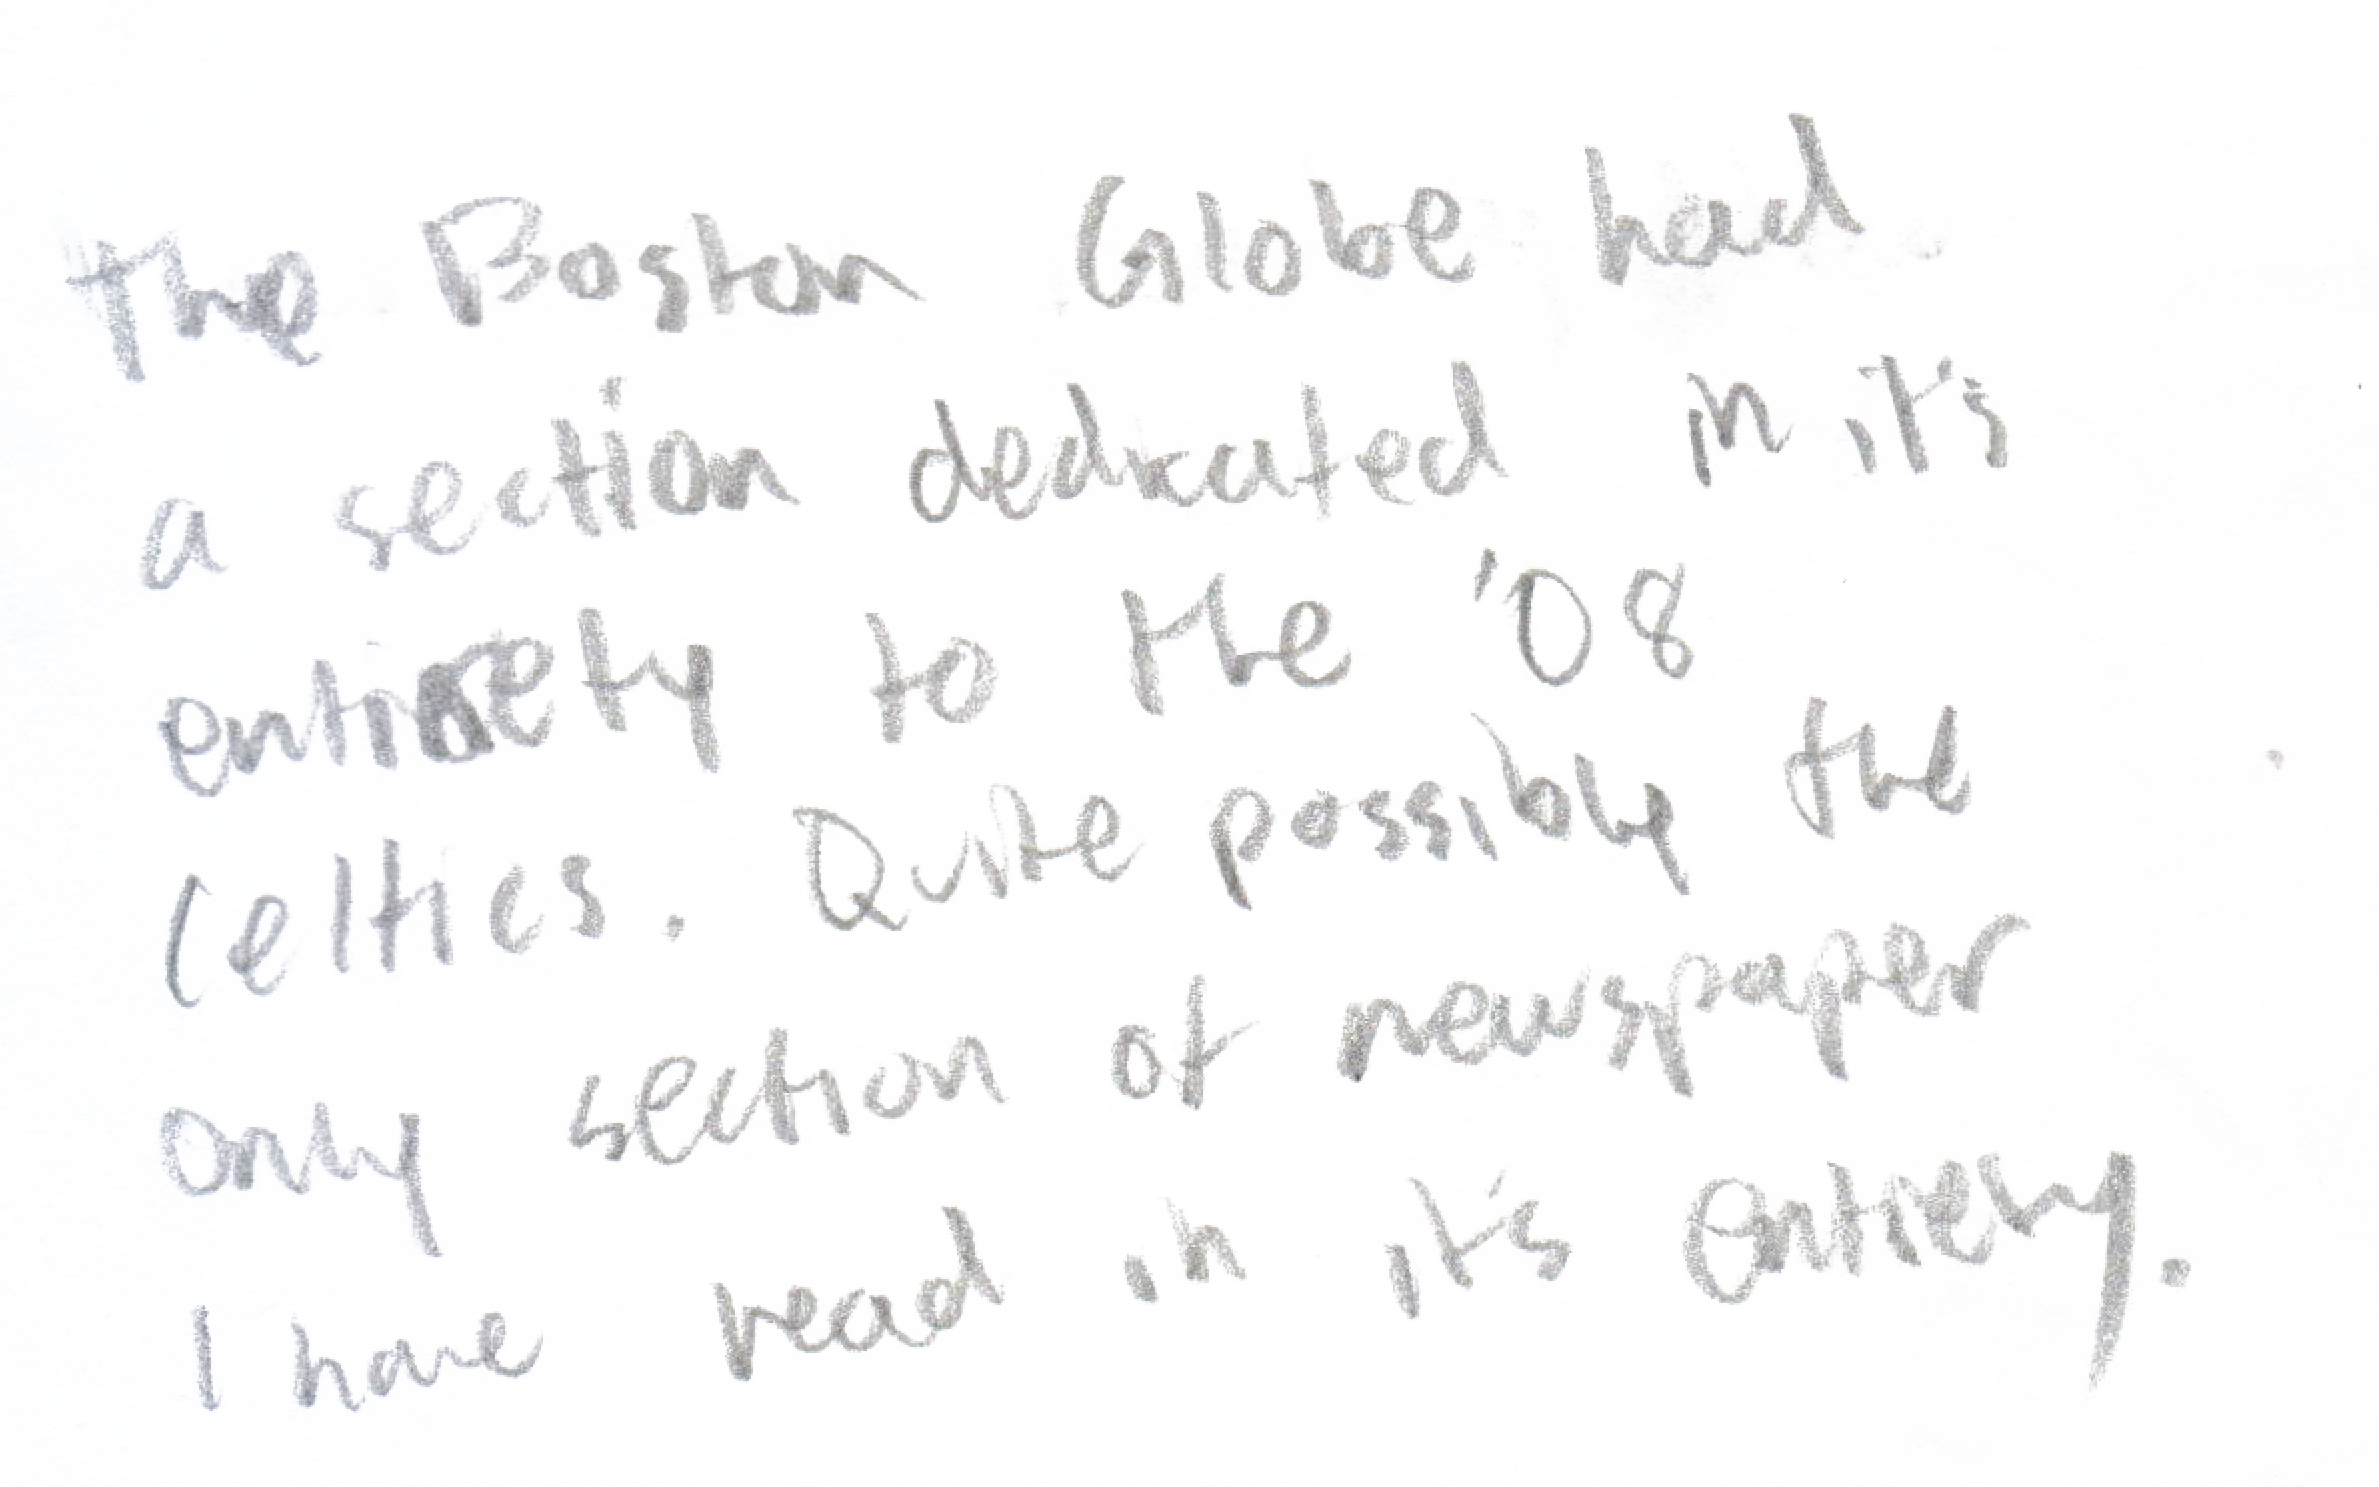 The Boston Globe had
a section dedicated in it's
entirety to the '08
Celtics. Quite possibly the
only section of newspaper
I have read in it's entirety.